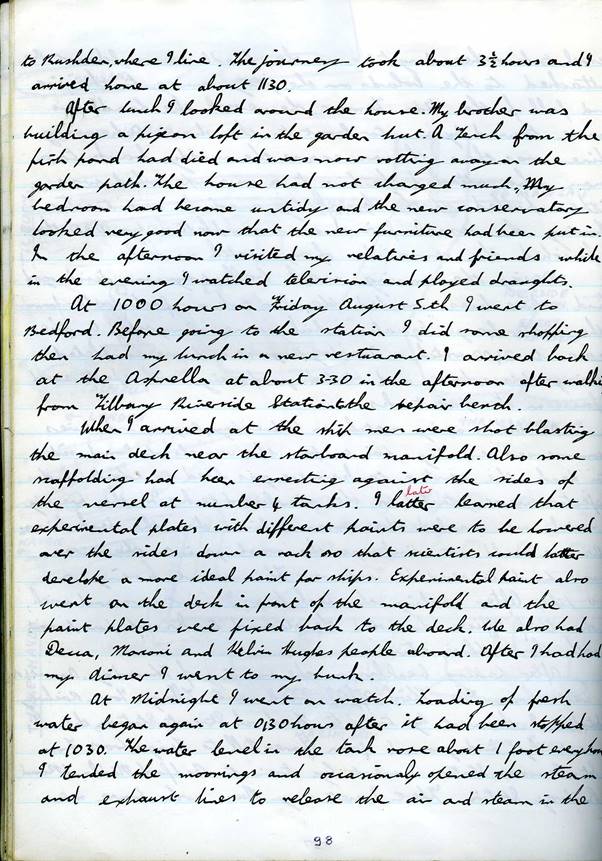 to Rushden, where I live. The journey took about 3½ hours and I
arrived home at about 1130.
After lunch I looked around the house. My brother was
building a pigeon loft in the garden but. A Tench from the
fish pond had died and was now rotting away on the
garden path. The house had not changed much, My
bedroom had become untidy and the new conservatory
looked very good now that the new furniture had been put in.
In the afternoon I visited my relatives and friends while
in the evening I watched television and played draughts.
At 1000 hours on Friday August 5th I went to
Bedford. Before going to the station I did some shopping
then had my lunch in a new restuarant. I arrived back
at the Asprella at about 3-30 in the afternoon after walki
from Tilbury Riverside Station to the repair berth.
When I arrived at the ship men were shot blasting
the main deck near the starboard manifold. Also some
scaffolding had been errecting against the sides of
the vessel at number 4 tanks. I latter learned that
later
experimental plates with different paints were to be lowered
over the sides down a rack so that scientists could latter
develope a more ideal paint for ships. Experimental paint also
went on the deck in front of the manifold and the
paint plates were fixed back to the deck. We also had
Decca, Marconi and Kelvin Hughes people aboard. After I had had
my dinner I went to my bunk.
At Midnight I went on watch. Loading of fresh
water began again at 0130 hours after it had been stopped
at 1030. The water level in the tank rose about 1 foot every hour
I tended the moornings and occasionaly opened the steam
and exhaust lines to release the air and steam in the
98